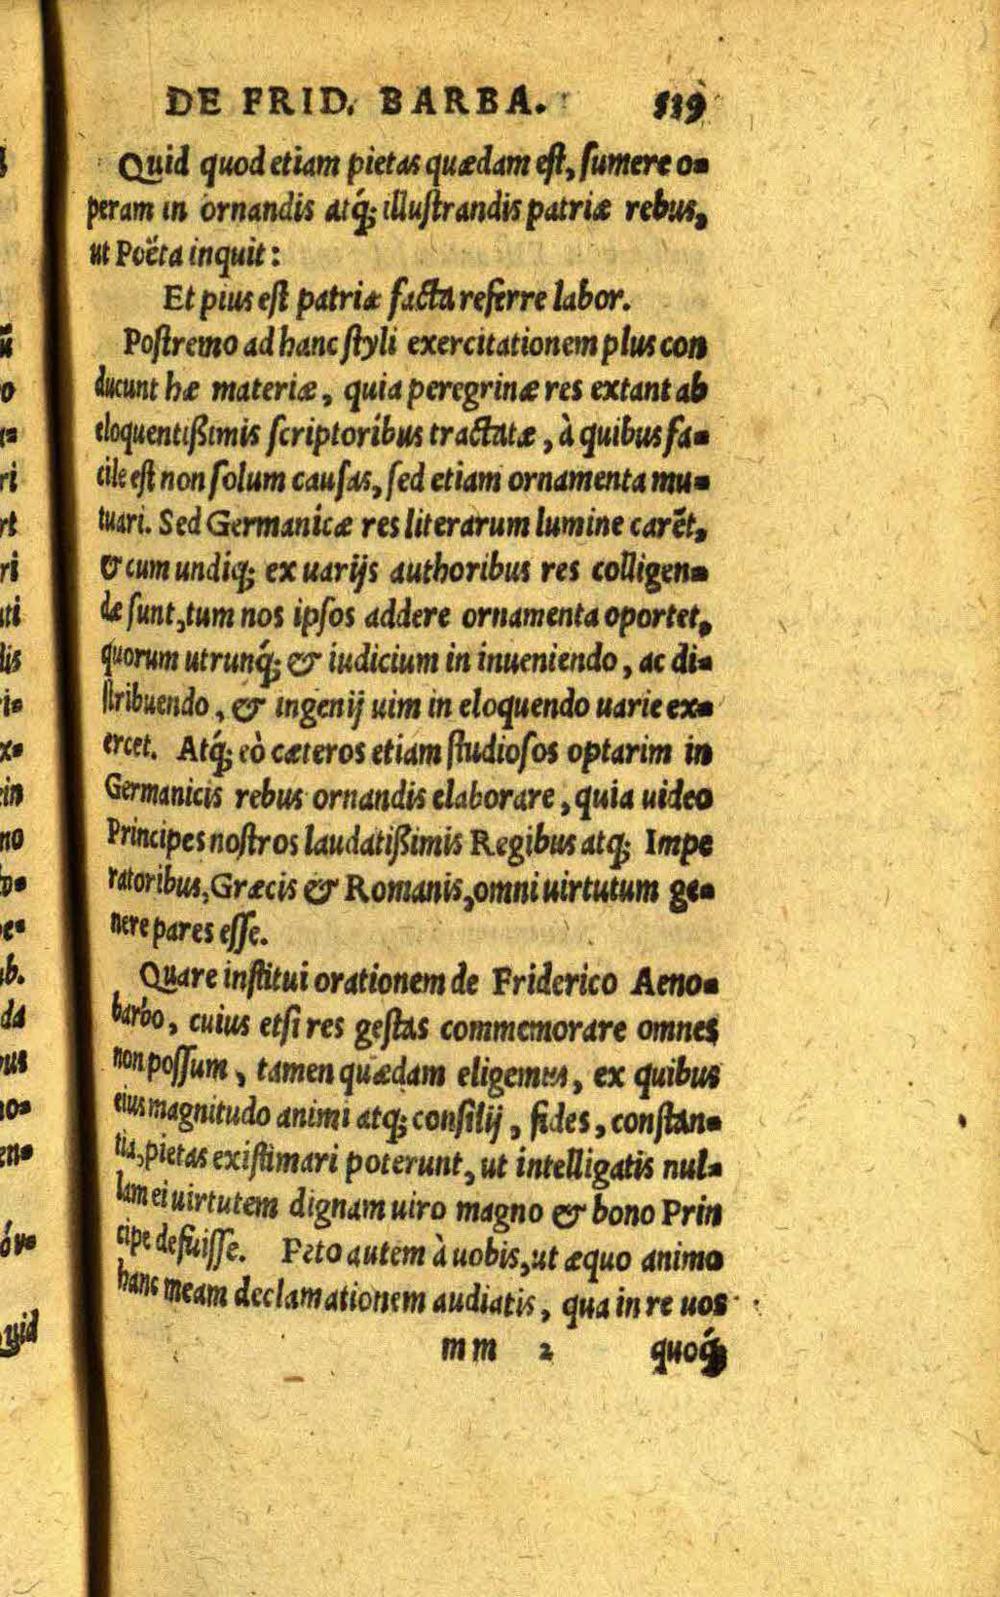 DE FRID. BARBA. 539
Quid quod etiam pietas quædam est, sumere o=
peram in ornandis atq́; illustrandis patriæ rebus,
ut Poëta inquit:
Et pius est patriæ facta referre labor.
Postremo ad hanc styli exercitationem plus con
ducunt hæ materiæ, quia peregrinæ res extant ab
eloquentißimis scriptoribus tractatæ, à quibus fa=
cile est non solum causas, sed etiam ornamenta mu=
tuari. Sed Germanicæ res literarum lumine carẽt,
& cum undiq; ex uarijs authoribus res colligen=
dæ sunt, tum nos ipsos addere ornamenta oportet,
quorum utrunq́; & iudicium in inueniendo, ac di=
stribuendo, & ingenij uim in eloquendo uarie ex=
ercet. Atq́; eò cæteros etiam studiosos optarim in
Germanicis rebus ornandis elaborare, quia uideo
Principes nostros laudatißimis Regibus atq; Impe
ratoribus, Græcis & Romanis, omni uirtutum ge=
nere pares esse.
Quare institui orationem de Friderico Aeno=
barbo, cuius etsi res gestas commemorare omnes
non possum, tamen quædam eligemus, ex quibus
eius magnitudo animi atq; consilij, fides, constan=
tia, pietas existimari poterunt, ut intelligatis nul=
lam ei uirtutem dignam uiro magno & bono Prin
cipe defuisse. Peto autem à uobis, ut æquo animo
hanc meam declamationem audiatis, qua in re uos
mm 2 quoq́;